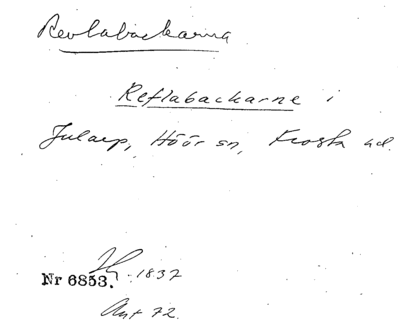 Revlabackarna
Reflabackarne i
Jularp, Höör sn, Frosta hd.
1837
Nr 6853.
Avt 72.